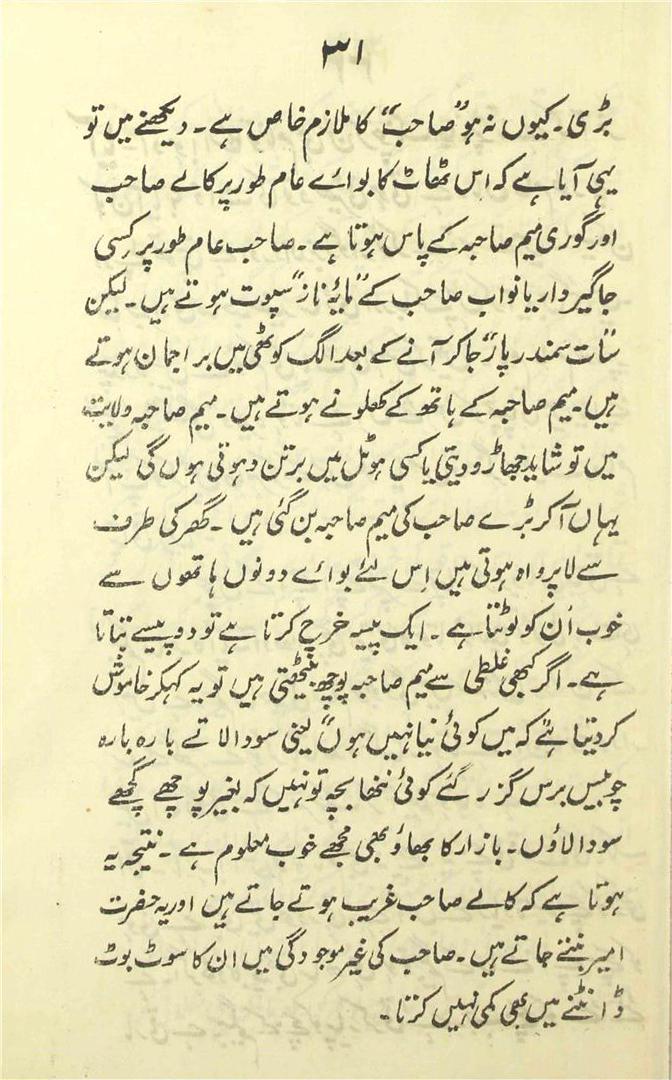 ۳۱
بڑی۔ کیوں نہ ہو "صاحب" کا ملازم خاص ہے۔ دیکھنے میں تو
یہی آیا ہے کہ اس ٹھاٹ کا بوائے عام طور پر کالے صاحب
اور گوری میم صاحبہ کے پاس ہوتا ہے۔ صاحب عام طور پر کِسی
جاگیردار یا نواب صاحب کے "مایۂ ناز" سپوت ہوتے ہیں۔ لیکن
"سات سمندر پار" جا کر آنے کے بعد الگ کوٹھی میں براجمان ہوتے
ہیں۔ میم صاحبہ کے ہاتھ کے کھلونے ہوتے ہیں۔ میم صاحبہ ولایت
میں تو شاید جھاڑو دیتی یا کسی ہوٹل میں برتن دھوتی ہوں گی لیکن
یہاں آ کر بڑے صاحب کی میم صاحبہ بن گئی ہیں۔ گھر کی طرف
سے لاپرواہ ہوتی ہیں اِس لئے بوائے دونوں ہاتھوں سے
خوب اُن کو لوٹتا ہے۔ ایک پیسہ خرچ کرتا ہے تو دو پیسے بتاتا
ہے۔ اگر کبھی غلطی سے میم صاحبہ پوچھ بیٹھتی ہیں تو یہ کہکر خاموش
کر دیتا ہے کہ "میں کوئی نیا نہیں ہوں" یعنی سودا لاتے بارہ بارہ
چوبیس برس گزر گئے کوئی ننھا بچہ تو نہیں کہ بغیر پوچھے گچھے
سودا لاؤں۔ بازار کا بھاؤ بھی مجھے خوب معلوم ہے۔ نتیجہ یہ
ہوتا ہے کہ کالے صاحب غریب ہوتے جاتے ہیں اور یہ حضرت
امیر بنتے جاتے ہیں۔ صاحب کی غیر موجودگی میں ان کا سوٹ بوٹ
ڈانٹنے میں بھی کمی نہیں کرتا۔